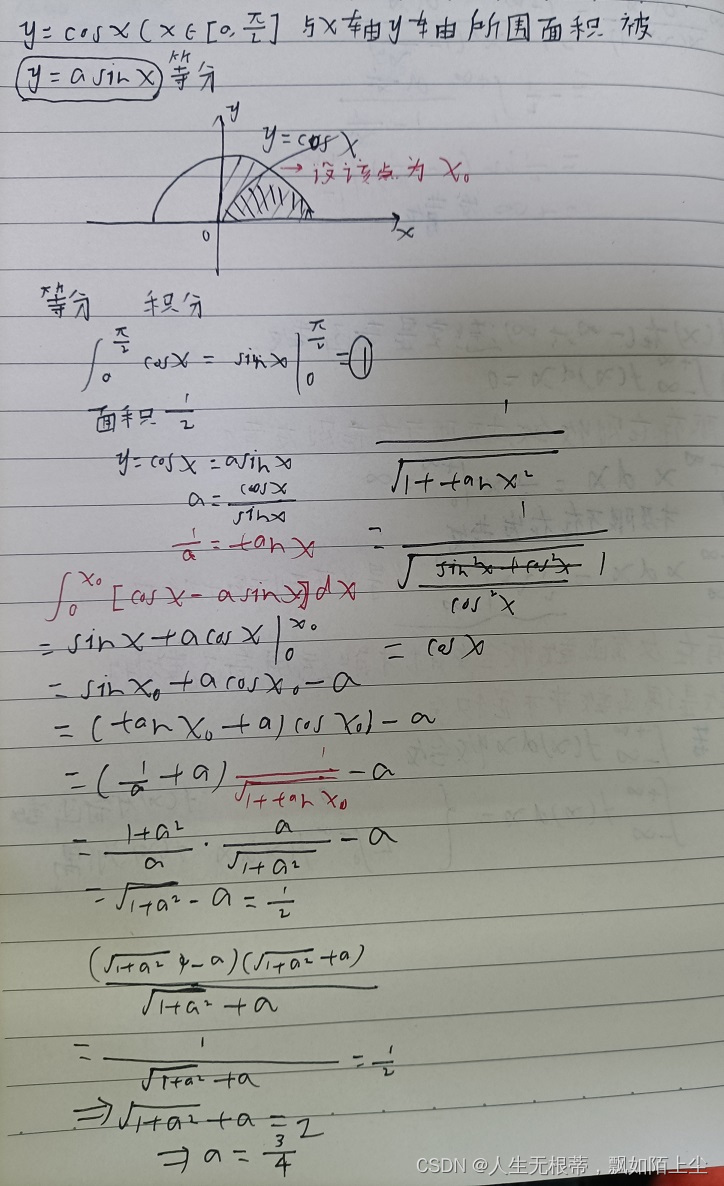 y = cosx (x∈[0, π/2] 与x轴y轴所围面积被
y = a sinx 等分
y
y=cosx
→ 设该点为 x₀
0
x
等分 积分
∫₀^{π/2} cosx = sinx |₀^{π/2} = ①
面积 1/2
y=cosx = asinx
a = cosx/sinx
1/a = tanx
1/√(1+tanx²)
= 1/√((sin²x+cos²x) 1/cos²x)
= cosx
∫₀^{x₀} [cosx - asinx]dx
= sinx + acosx |₀^{x₀}
= sinx₀ + acosx₀ - a
= (tanx₀ + a) cosx₀) - a
= (1/a + a) 1/√(1+tanx₀) - a
= (1+a²)/a · a/√(1+a²) - a
= √(1+a²) - a = 1/2
(√(1+a²) - a)(√(1+a²) + a)/(√(1+a²) + a)
= 1/(√(1+a²) + a) = 1/2
⇒ √(1+a²) + a = 2
⇒ a = 3/4
CSDN @人生无根蒂，飘如陌上尘